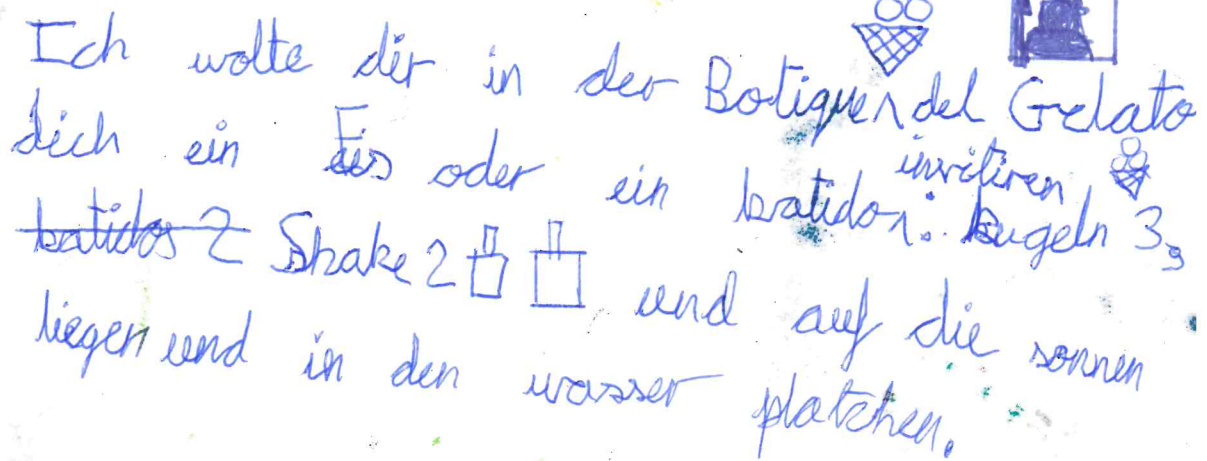 Ich wolte dir in der Botiquen del Gelato
dich ein Eis oder ein batidon: invitiren Kugeln 3,
batidos 2 Shake 2 und auf die sonnen
liegen und in den wasser platchen.